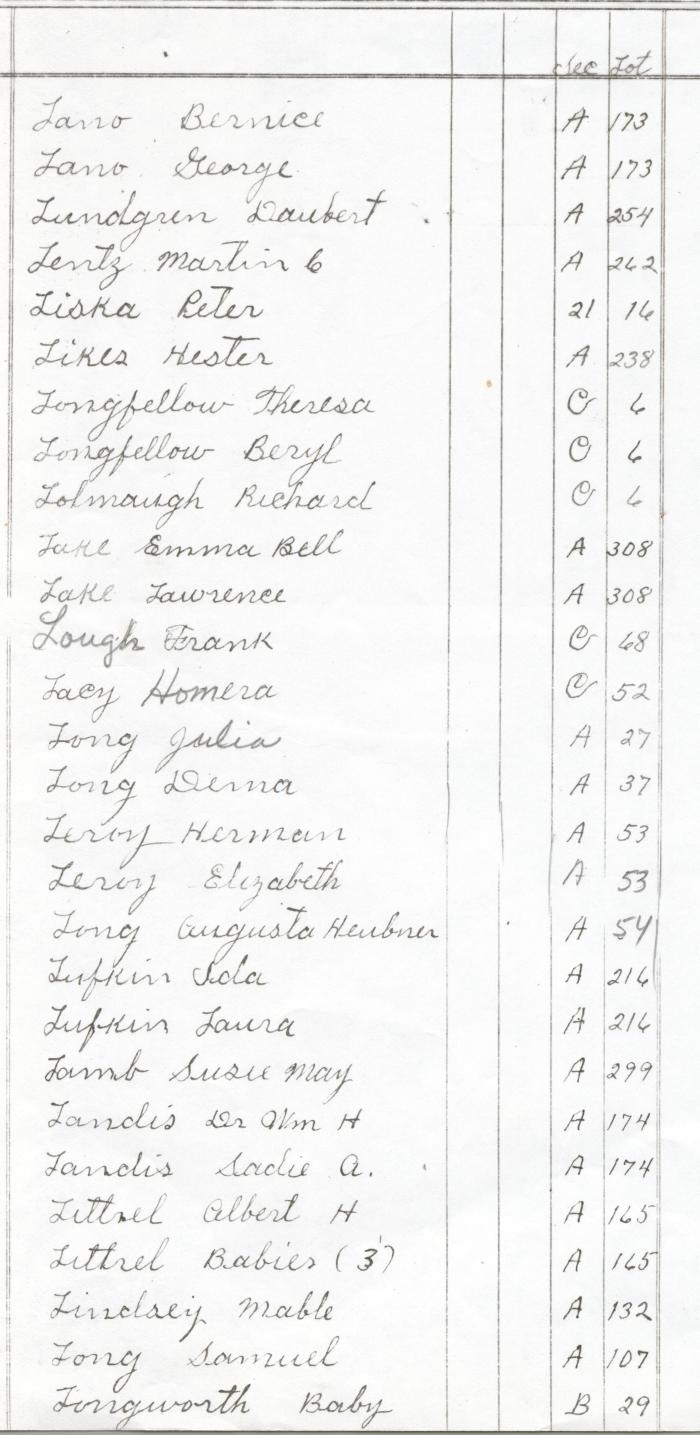 Sec Lot
Lano Bernice A 173
Lano George A 173
Lundgren Daubert A 254
Lentz Martin C A 262
Liska Peter 21 16
Likes Hester A 238
Longfellow Theresa C 6
Longfellow Beryl C 6
Lolmaugh Richard C 6
Lake Emma Bell A 308
Lake Lawrence A 308
Lough Frank C 68
Lacy Homera C 52
Long Julia A 27
Long Dema A 37
Leroy Herman A 53
Leroy Elizabeth A 53
Long Augusta Heubner A 54
Lufkin Ida A 216
Lufkin Laura A 216
Lamb Susie May A 299
Landis Dr Wm H A 174
Landis Sadie A. A 174
Littrel Albert H A 165
Littrel Babies (3) A 165
Lindsey Mable A 132
Long Samuel A 107
Longworth Baby B 29